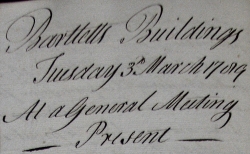 Bartletts Buildings
Tuesday 3d March 1789
At a General Meeting
Present